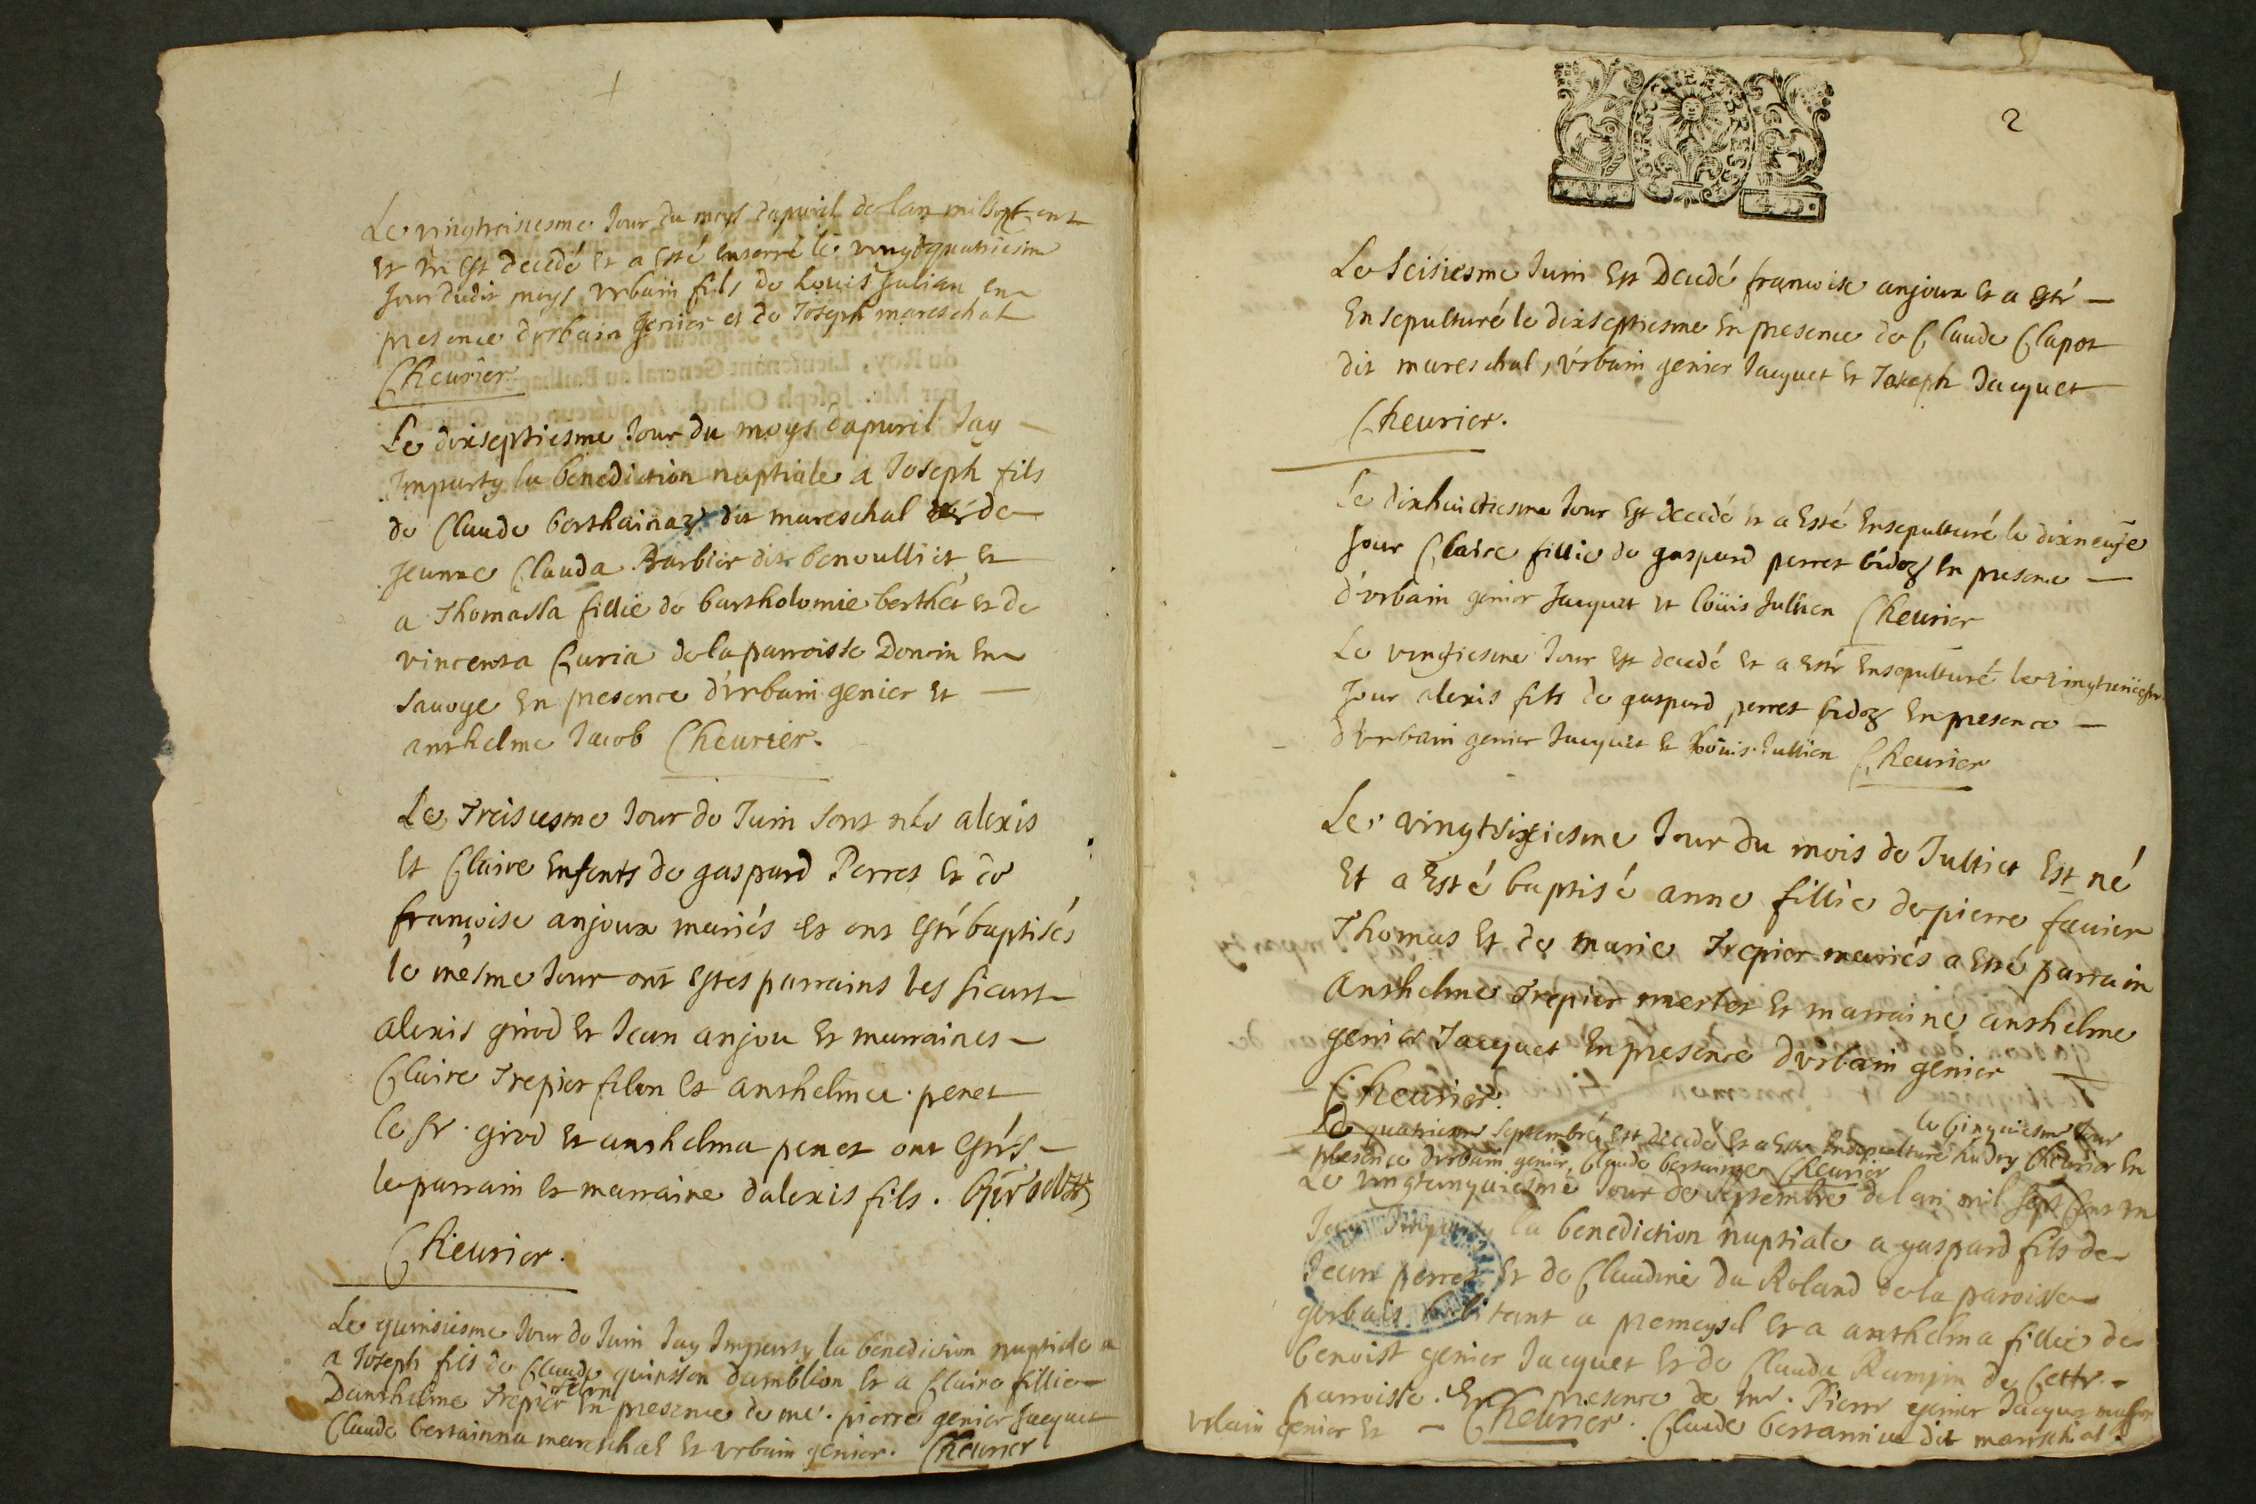 Le vingtroisiesme Jour du moys dapuril de lan mil sept cent
et un est decedé et a esté enterré le vingtquatriesme
Jour dudit moys, urbain fils de Louis Julian en
presence durbain Genier et de Joseph mareschal
Cheurier
Le dixseptiesme Jour du moys dapuril Jay
Imparty la benediction nuptiale a Joseph fils
de Claude berthainaz dit mareschal de
Jeanne Clauda Barbier dit benoulliet et
a Thomassa fillie de bartholomie berthet et de
vincenta Curia de la parroisse Doncin en
savoye En presence d'urbain genier et
anthelme Jacob Cheurier.
Le Treisiesme Jour de Juin sont nés alexis
et Claire Enfents de gaspard Perret et de
francoise anjoux mariés et ont esté baptisés
le mesme Jour ont estes parrains les sieurs
alexis girod et Jean anjou et marraines
Claire Trepier filon et anthelma penet
le sr. girod et anthelma penet ont estés
le parrain et marraine dalexis fils.
Cheurier.
Le quinsiesme Jour de Juin Jay Imparty la benediction nuptiale a
a Joseph fils de Claude quinsson damblion et a Claire fillie
Danthelme Trepier filon En presence de me. pierre genier Jacquet
Claude bertainna mareschal et urbain genier. Cheurier
2
4 D.
Le seisiesme Juin Est Decedé francoise anjoux et a esté
Ensepulturé le dixseptiesme En presence de Claude Clapot
dit mareschal, urbain genier Jacquet et Joseph Jacquet
Cheurier.
Le dixhuictiesme Jour Est decedé et a Esté Ensepulturé le dixneufe
Jour Claire fillie de gaspard perret bidoz En presence
d'urbain genier Jacquet et louis Jullien Cheurier
Le vingtiesme Jour Est decedé et a Esté Ensepulturé le
Jour alexis fils de gaspard perret bidoz En presence
d'urbain genier Jacquet et Louis Jullien Cheurier
Le vingtsixiesme Jour du mois de Julliet Est né
Et a Esté baptisé anne fillie de pierre fauier
Thomas et de marie Trepier mariés a Esté parrain
Anthelme Trepier merlet et marraine anthelme
genier Jacquet En presence durbain genier
Cheurier.
le Cinquiesme Jour
Le quatriesme septembre Est decedé Et a Esté Ensepulturé Cheurier En
presence durbain genier, Claude bertainne Cheurier
Le vingtcinquiesme Jour de septembre de lan mil sept Cent un
Jay Imparty la benediction nuptiale a gaspard fils de
Jean perret et de Claudine du Roland de la paroisse
gerbais habitant a premeysel et a anthelma fillie de
benoist genier Jacquet et de Clauda Rampin de Cette
parroisse. En presence de mr. Pierre genier Jacquet
urbain genier et Cheurier. Claude bertannine dit mareschal.